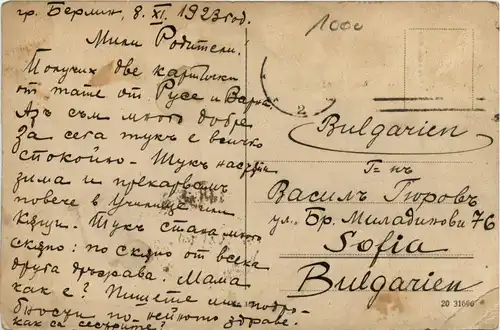 гр. Берлин, 8. XI. 1923 год.
Мили Родители!
Получих две картички
от тате от Русе и Варна.
Азъ съм много добре
За сега тукъ е всичко
спокойно. Тукъ настѫпи
зима и прекарвамъ
повече в Училище или
кѫщи. Тукъ става много
скѫпо: по скѫпо от всека
друга държава. Мама
как е? Пишете ми подро-
бности по нейното здраве.
как са сестрите?
1000
2
Bulgarien
Г-нъ
Василъ Гюровъ
ул. Бр. Миладинови 76
Sofia
Bulgarien
20 31690